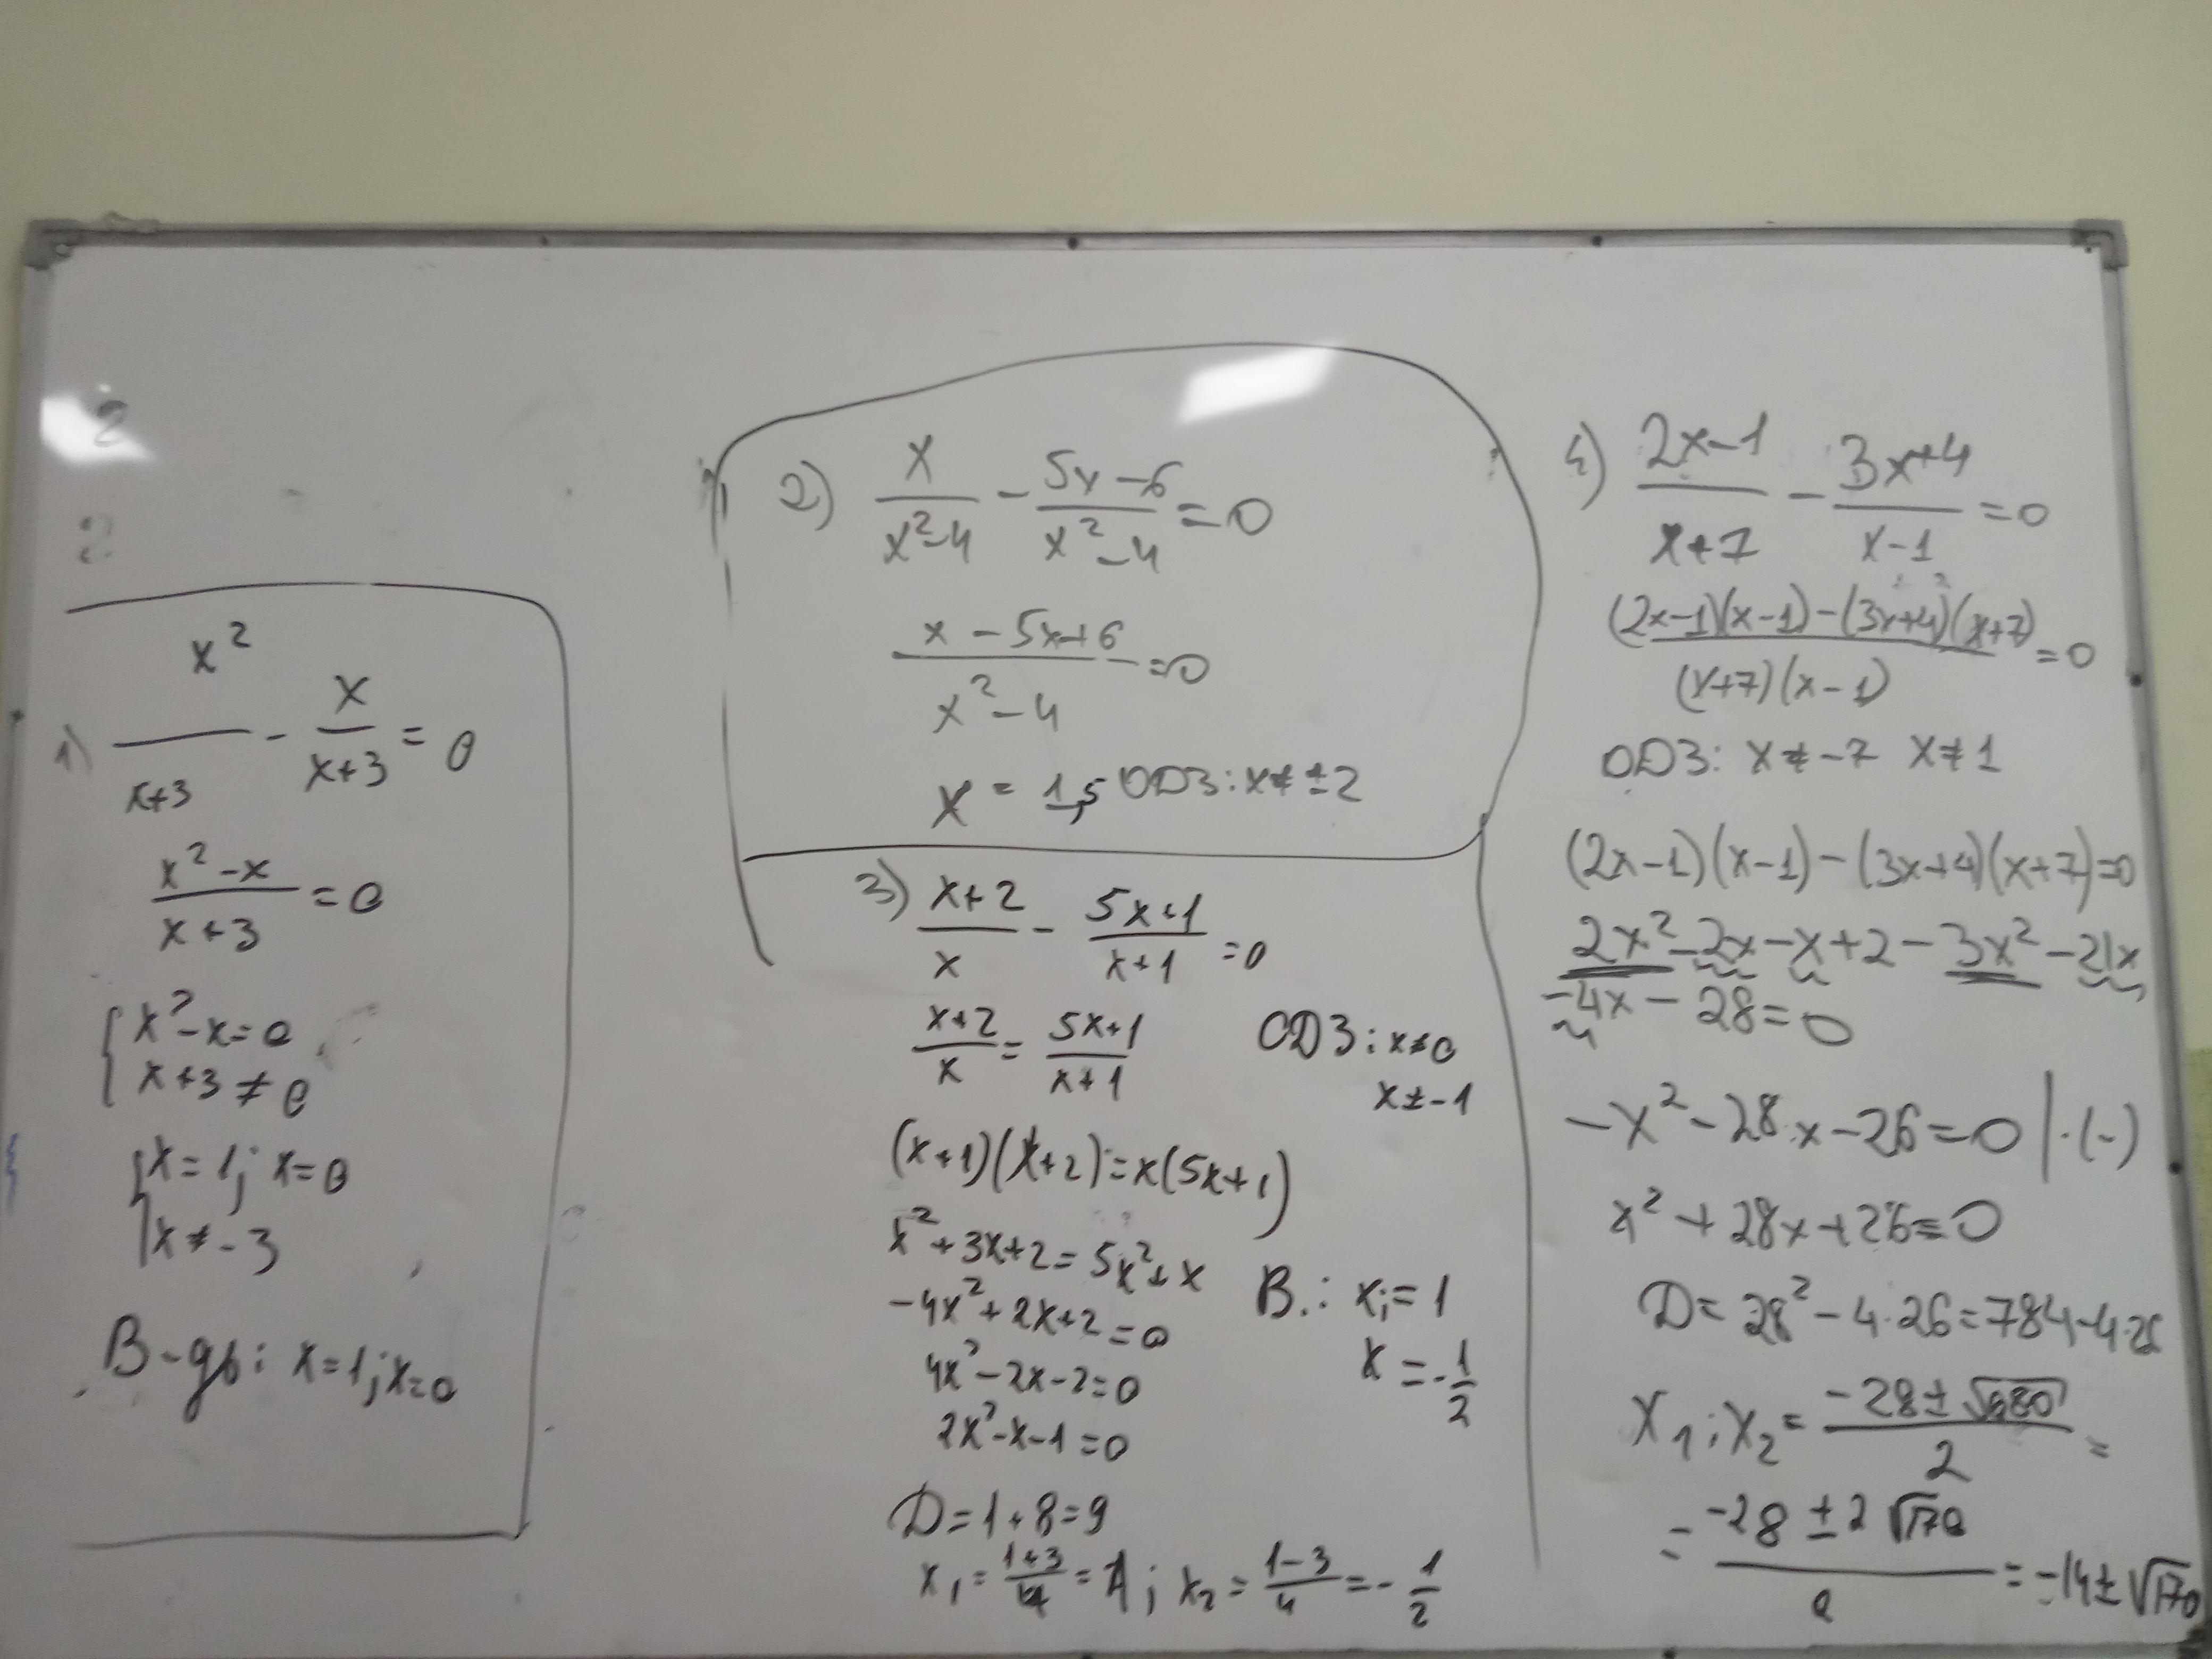 2
1) x²/x+3 - x/x+3 = 0
x²-x/x+3 = 0
{x²-x=0
x+3≠0
{x=1; x=0
x≠-3
В-дь: x=1; x=0
2) x/x²-4 - 5x-6/x²-4 = 0
x-5x+6/x²-4 = 0
x = 1,5 ОДЗ: x≠±2
3) x+2/x - 5x+1/x+1 = 0
x+2/x = 5x+1/x+1 ОДЗ: x≠0
x≠-1
(x+1)(x+2)=x(5x+1)
x²+3x+2=5x²+x
-4x²+2x+2=0
4x²-2x-2=0
2x²-x-1=0
D=1+8=9
x₁ = 1+3/4 = 1; x₂ = 1-3/4 = -1/2
В.: x₁=1
x = -1/2
4) 2x-1/x+7 - 3x+4/x-1 = 0
(2x-1)(x-1)-(3x+4)(x+7)/(x+7)(x-1) = 0
ОДЗ: x≠-7 x≠1
(2x-1)(x-1)-(3x+4)(x+7)=0
2x²-2x-x+2-3x²-21x
-4x-28=0
-x²-28x-26=0 |·(-)
x²+28x+26=0
D=28²-4·26=784-4·26
x₁; x₂ = -28±√680/2 =
= -28±2√170/2 = -14±√170